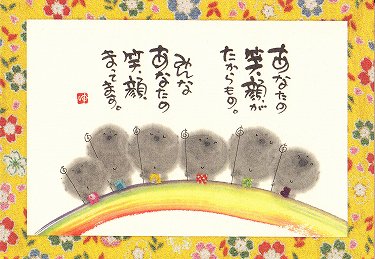 あなたの
笑顔が
たからもの。
みんな
あなたの
笑顔
まってます。